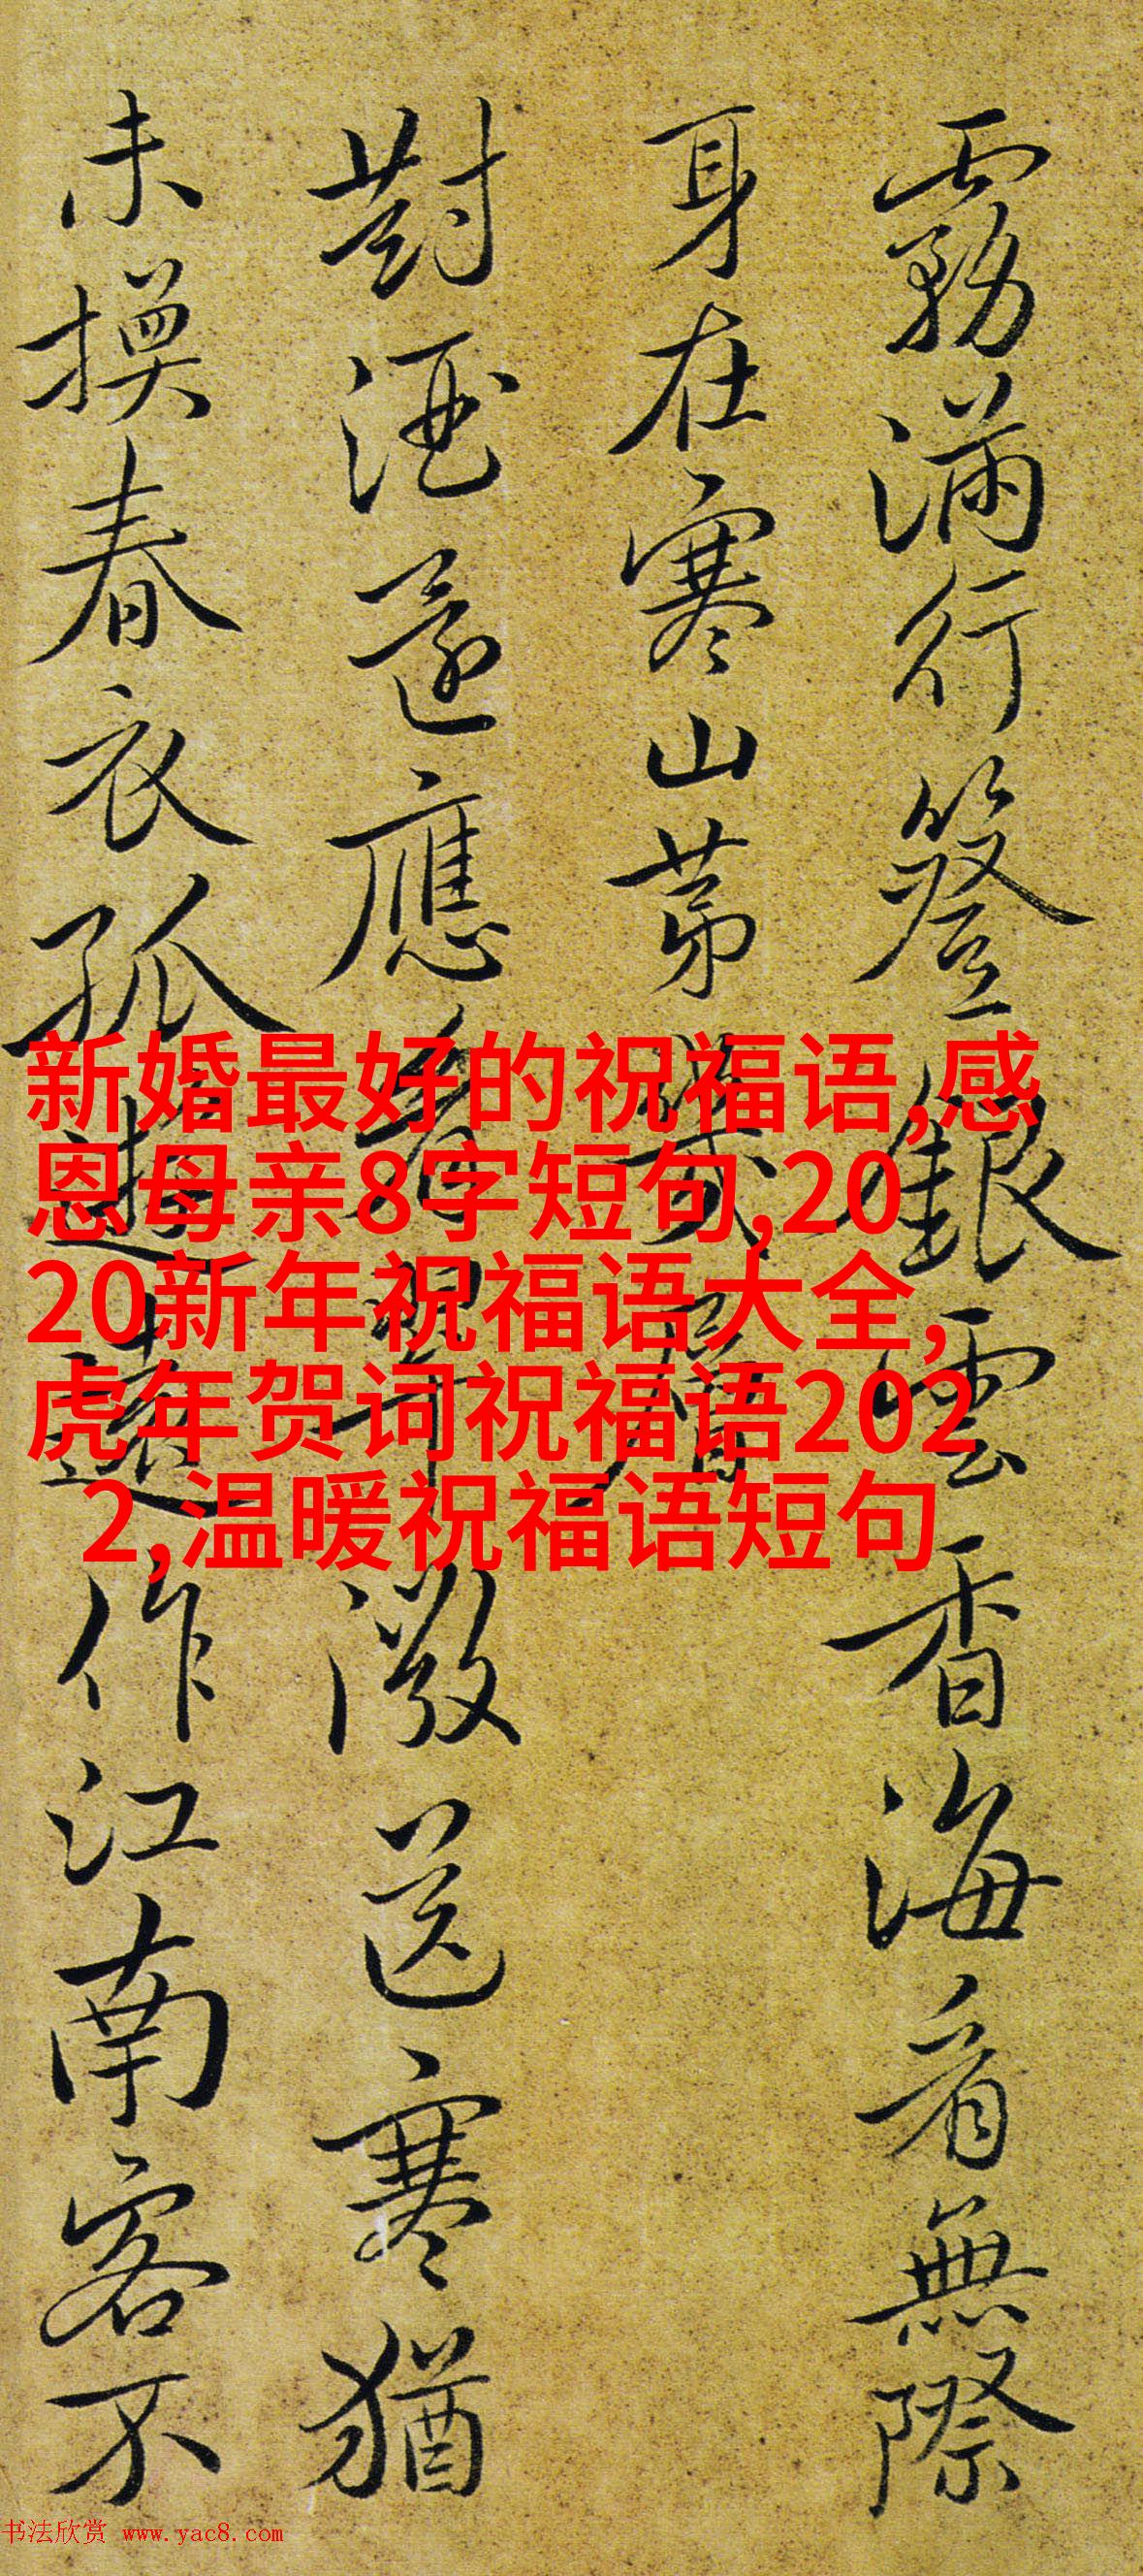 霧滿行簦銀雲香海看無際
身在寒山苐弌層
對酒還應送寒猶
未換春衣孤遠作江南客不
新婚最好的祝福语,感
恩母亲8字短句,20
20新年祝福语大全,
虎年贺词祝福语202
2,温暖祝福语短句
书法欣赏 www.yac8.com